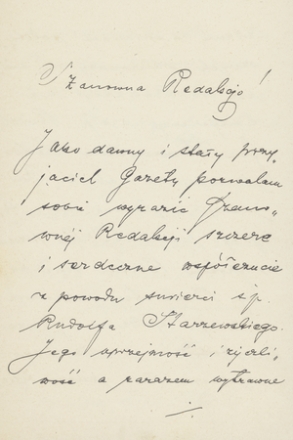 Szanowna Redakcjo!
Jako dawny i stały przy-
jaciel Gazety pozwalam
sobie wyrazić Szano-
wnéj Redakcji szczere
i serdeczne współczucie
z powodu śmierci śp.
Rudolfa Starzewskiego.
Jego uprzejmość i życzli-
wość a zarazem wytrawne